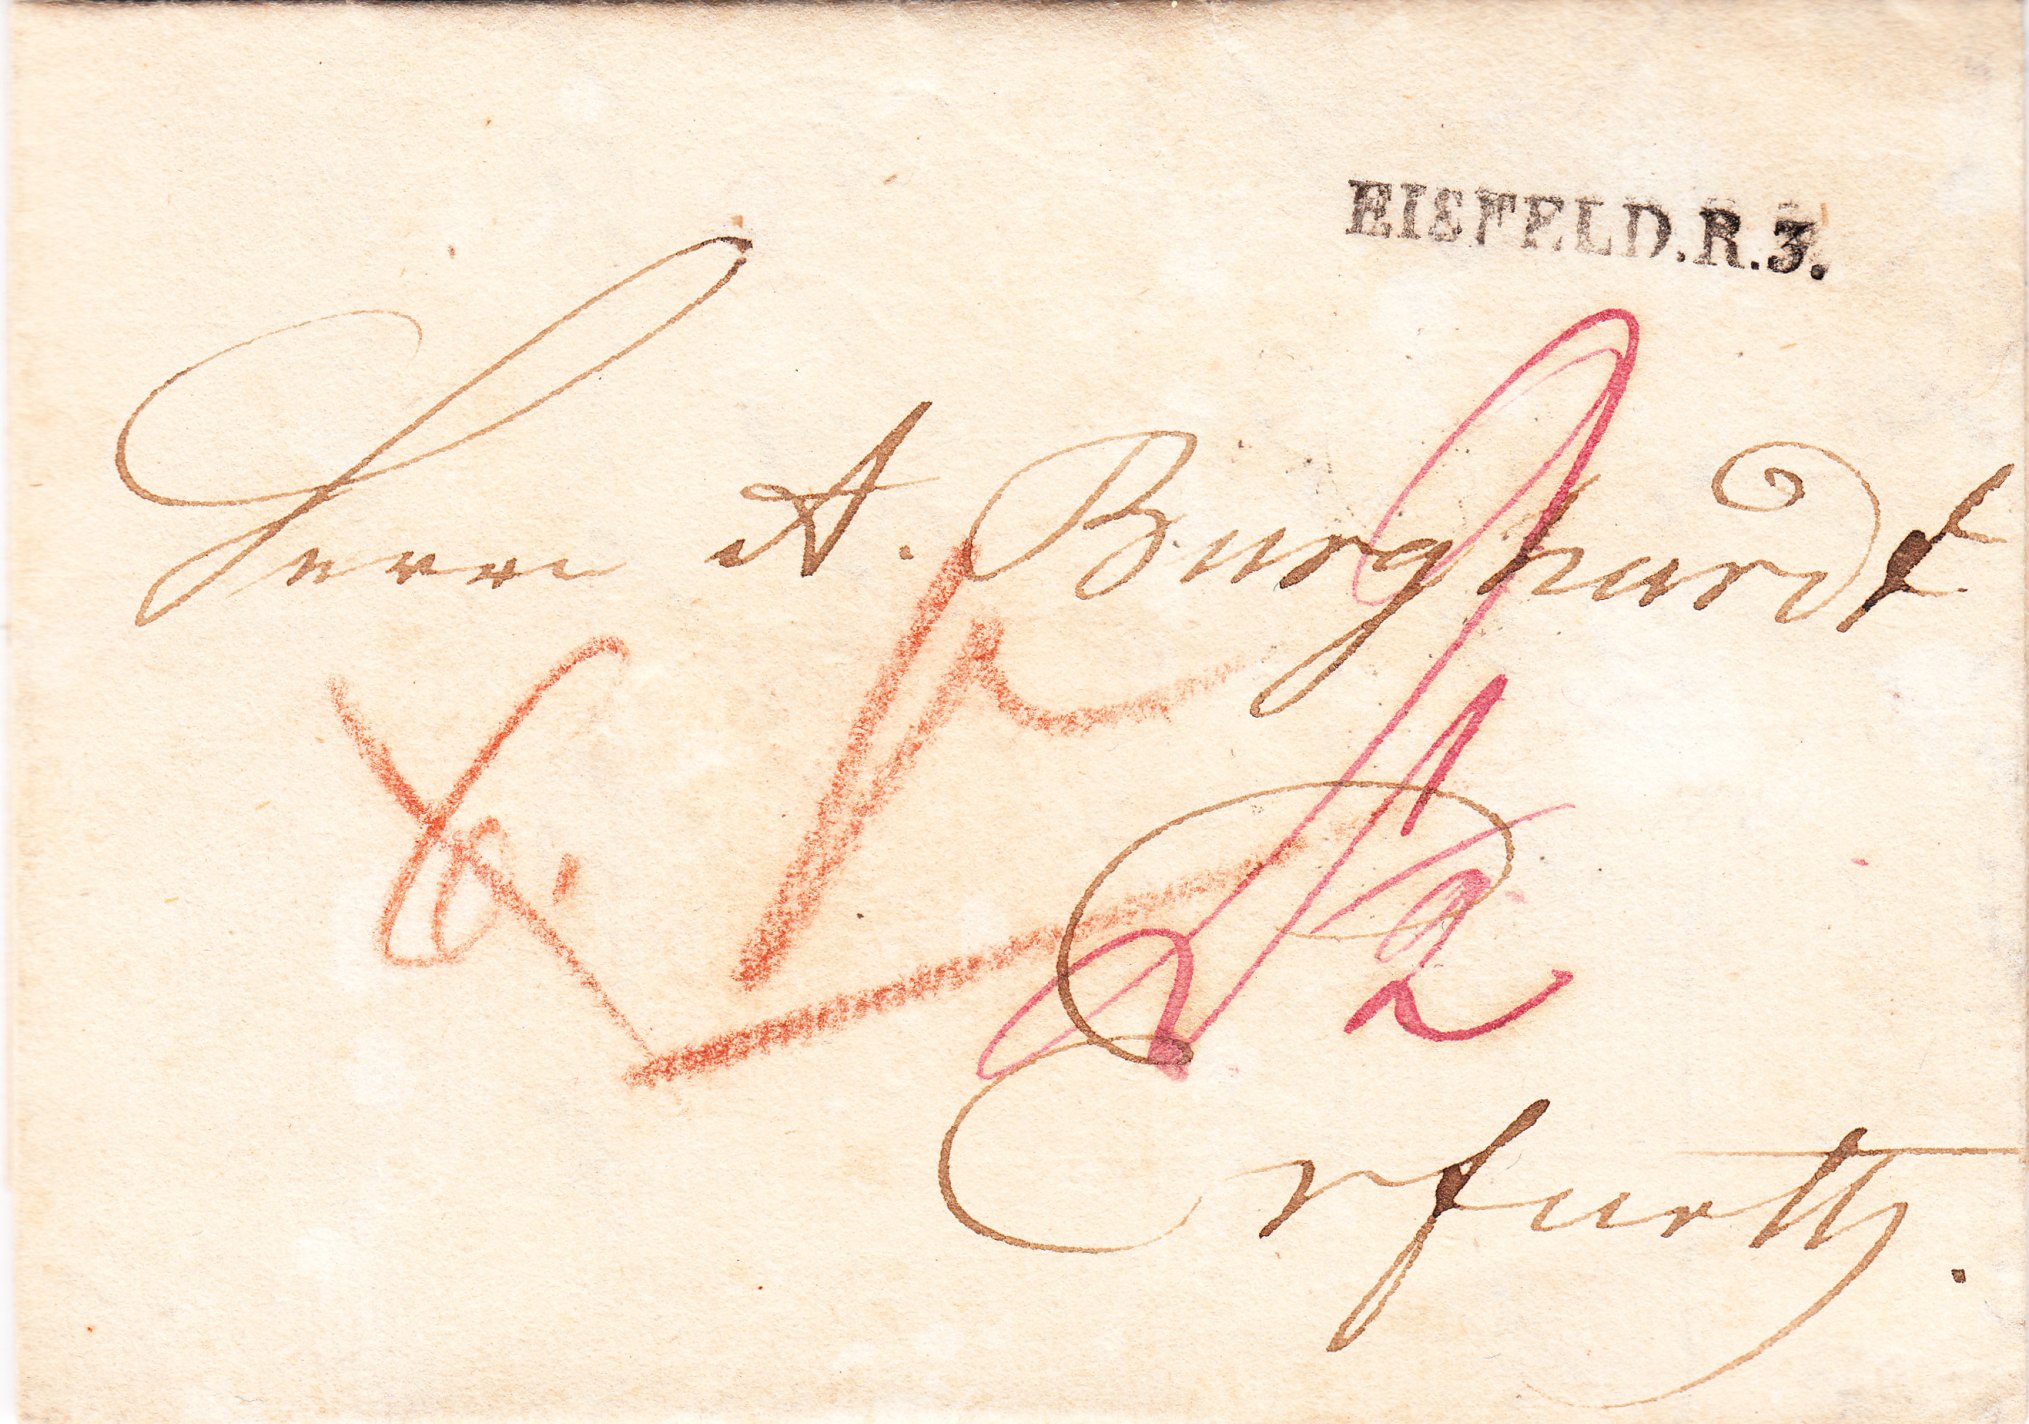 EISFELD.R.3.
Herrn A. Burghardt
Erfurth.